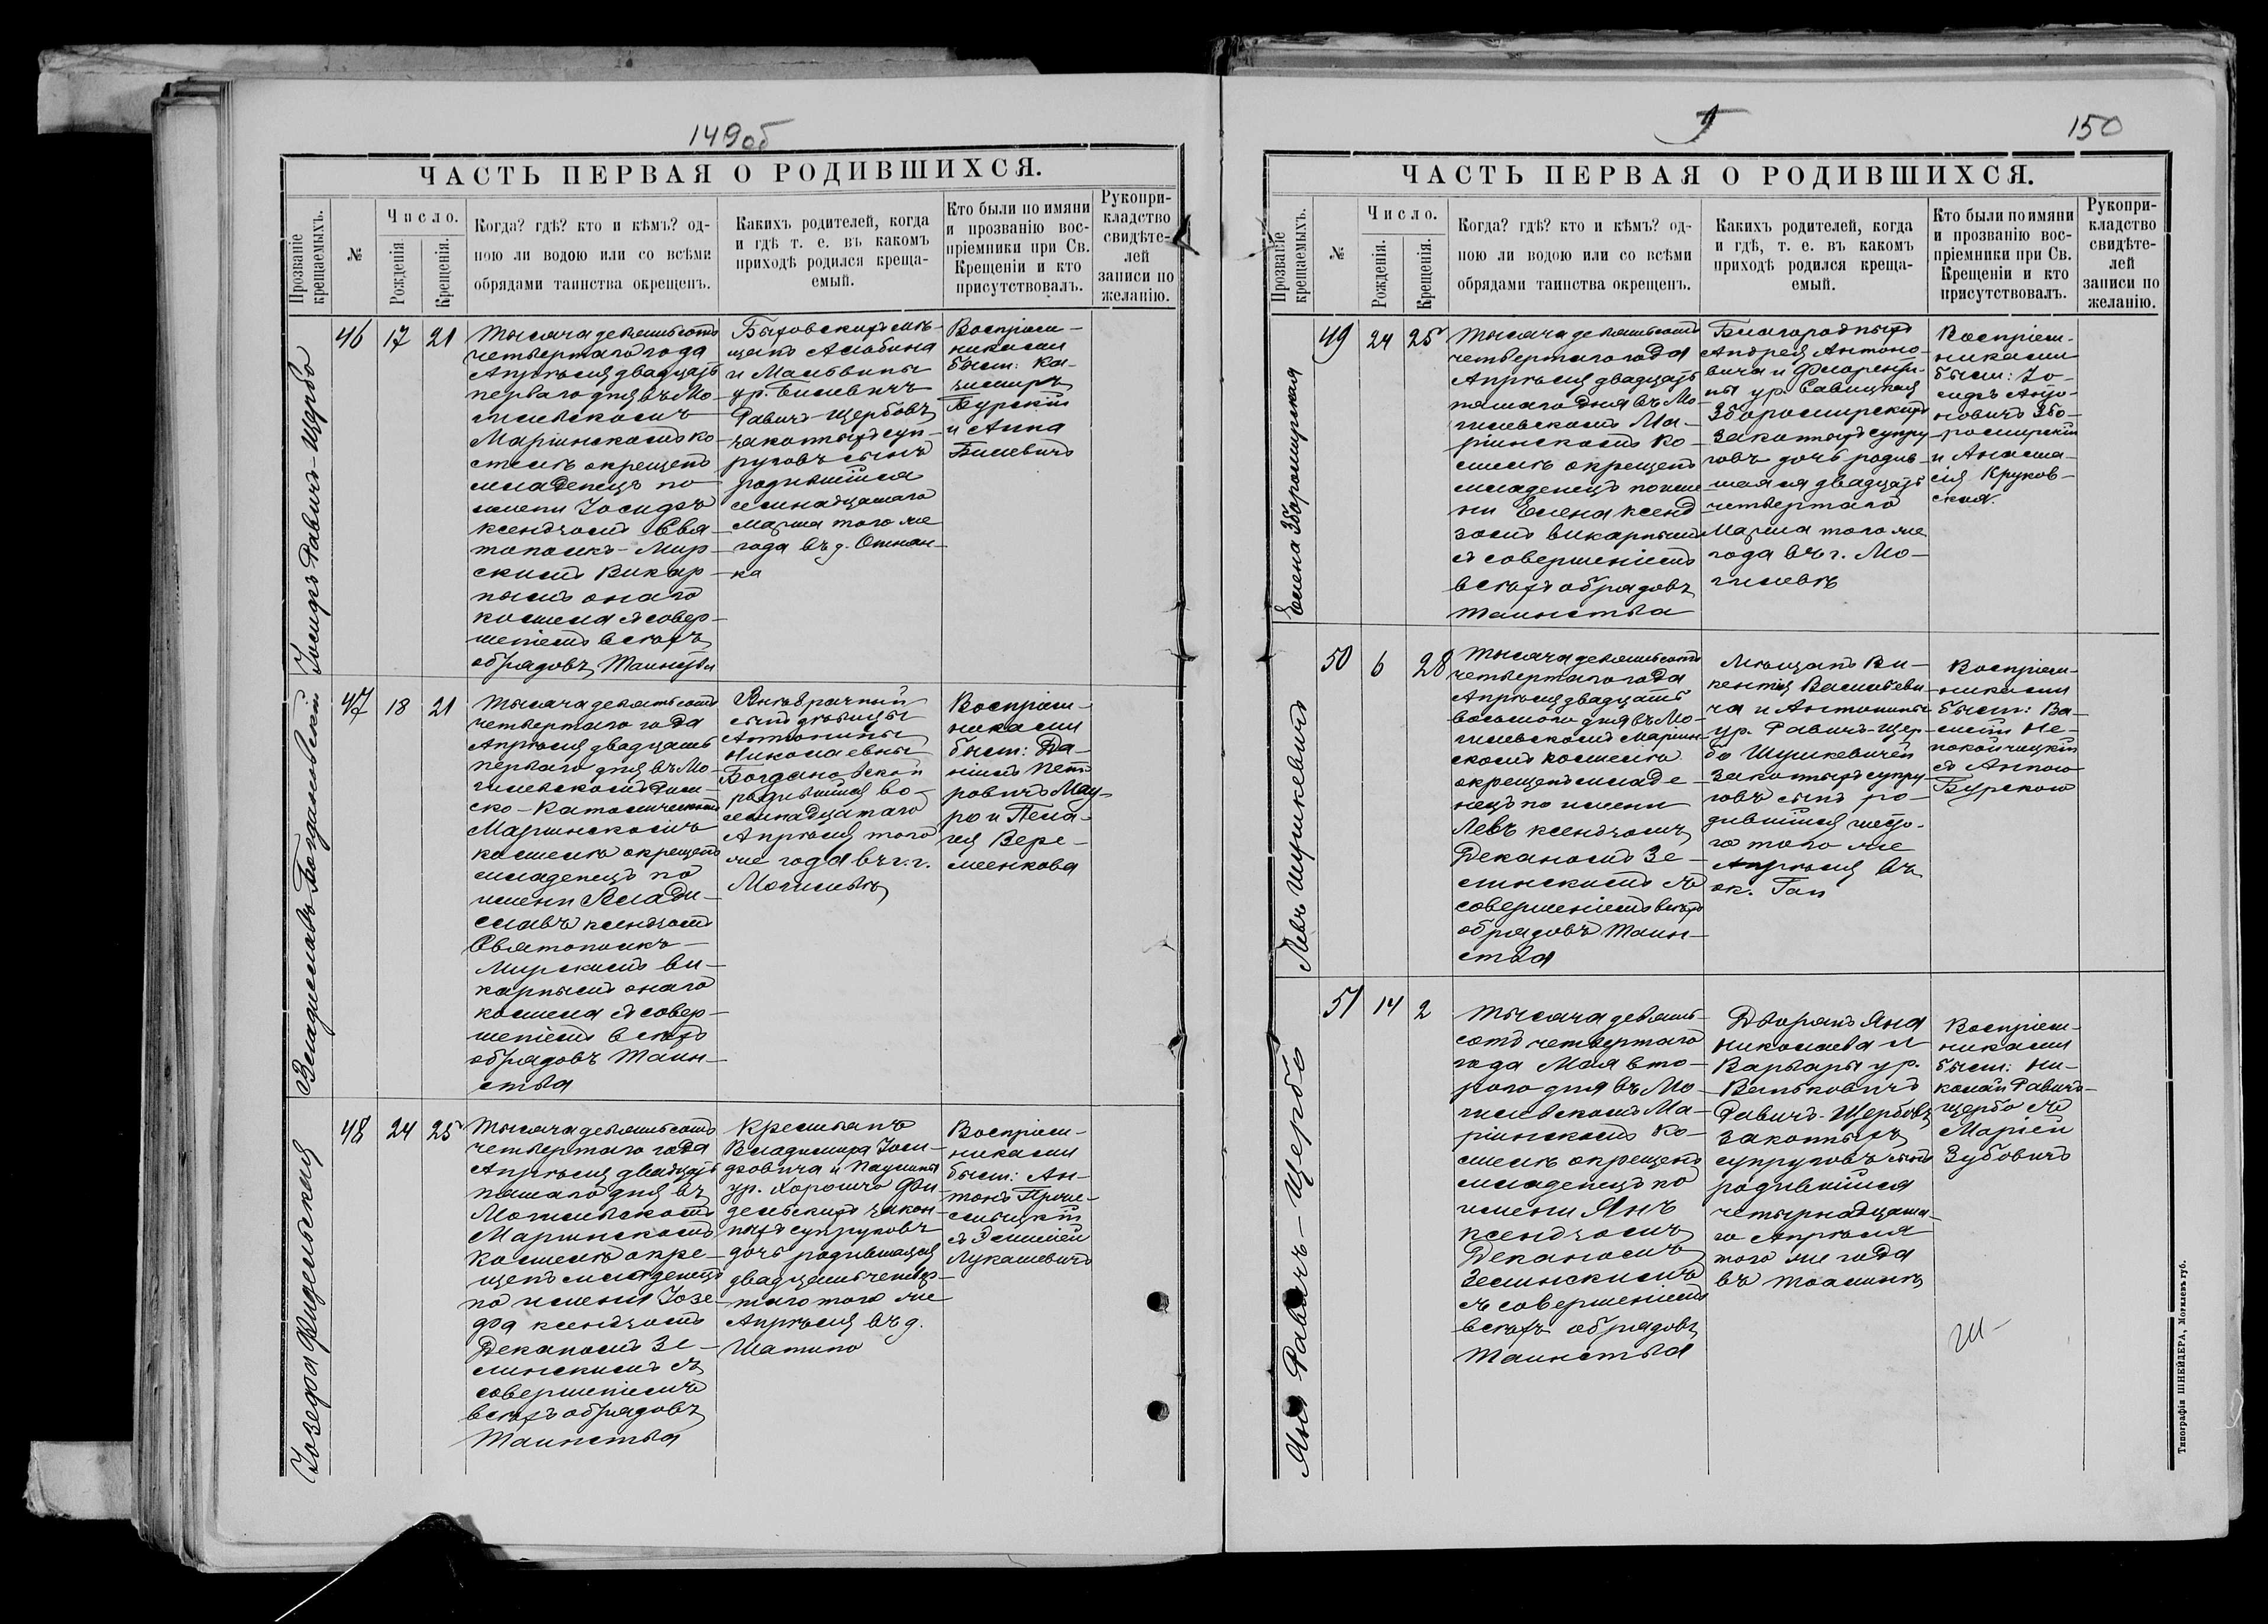 149об
ЧАСТЬ ПЕРВАЯ О РОДИВШИХСЯ.
Прозваніе крещаемыхъ.
№
Число.
Рожденія
Крещенія.
Когда? гдѣ? кто и кѣмъ? од-
ною ли водою или со всѣми
обрядами таинства окрещенъ.
Какихъ родителей, когда
и гдѣ т. е. въ какомъ
приходѣ родился креща-
емый.
Кто были по имяни
и прозванію вос-
пріемники при Св.
Крещеніи и кто
присутствовалъ.
Рукопри-
кладство
свидѣте-
лей
записи по
желанію.
Іосифъ Равичъ-Щербо
46
17
21
Тысяча девятьсотъ
четвертаго года
Апрѣля двадцать
перваго дня въ Мо-
гилевскомъ
Маріинскомъ ко-
стелѣ окрещенъ
младенецъ по
имени Іосифъ
ксендзомъ Свя-
тополкъ-Мир-
скимъ Викар-
нымъ онаго
костела съ совер-
шеніемъ всѣхъ
обрядовъ Таинства
Быховскихъ мѣ-
щанъ Альбина
и Мальвины
ур. Билевичъ
Равичъ-Щербовъ
законныхъ суп-
руговъ сынъ
родившійся
семнадцатаго
Марта того же
года въ д.
Воспріем-
никами
были: Ка-
зиміръ
Бурскій
и Анна
Билевичъ
Владиславъ Богдановскій
47
18
21
Тысяча девятьсотъ
четвертаго года
Апрѣля двадцать
перваго дня въ Мо-
гилевскомъ Рим-
ско-Католическомъ
Маріинскомъ
костелѣ окрещенъ
младенецъ по
имени Влади-
славъ ксендзомъ
Святополкъ-
Мирскимъ ви-
карнымъ онаго
костела съ совер-
шеніемъ всѣхъ
обрядовъ Таин-
ства
Внѣбрачный
сынъ дѣвицы
Антонины
Николаевны
Богдановской
родившійся во-
семнадцатаго
Апрѣля того
же года въ г.г.
Могилевѣ
Воспріем-
никами
были: Да-
ніилъ Пет-
ровичъ Мау-
ро и Пела-
гія Вере-
меенкова
Іозефа Фидельская
48
24
25
Тысяча девятьсотъ
четвертаго года
Апрѣля двадцать
пятаго дня въ
Могилевскомъ
Маріинскомъ
костелѣ окре-
щенъ младенецъ
по имени Іозе-
фа ксендзомъ
Деканомъ Зе-
линскимъ съ
совершеніемъ
всѣхъ обрядовъ
Таинства
Крестьянъ
Владиміра Іоси-
фовича и Паулины
ур. Хорошко Фи-
дельскихъ закон-
ныхъ супруговъ
дочь родившаяся
двадцать четвер-
таго того же
Апрѣля въ д.
Воспріем-
никами
были: Ан-
тонъ
съ Эмиліей
Лукашевичъ
150
ЧАСТЬ ПЕРВАЯ О РОДИВШИХСЯ.
Прозваніе крещаемыхъ.
№
Число.
Рожденія.
Крещенія.
Когда? гдѣ? кто и кѣмъ? од-
ною ли водою или со всѣми
обрядами таинства окрещенъ.
Какихъ родителей, когда
и гдѣ, т. е. въ какомъ
приходѣ родился креща-
емый.
Кто были по имяни
и прозванію вос-
пріемники при Св.
Крещеніи и кто
присутствовалъ.
Рукопри-
кладство
свидѣте-
лей
записи по
желанію.
Елена Зборомирская
49
24
25
Тысяча девятьсотъ
четвертаго года
Апрѣля двадцать
пятаго дня въ Мо-
гилевскомъ Ма-
ріинскомъ ко-
стелѣ окрещенъ
младенецъ по име-
ни Елена ксенд-
зомъ викарнымъ
съ совершеніемъ
всѣхъ обрядовъ
таинства
Благородныхъ
Андрея Антоно-
вича и Флоренти-
ны ур. Савицкая
Зборомирскихъ
законныхъ супру-
говъ дочь родив-
шаяся двадцать
четвертаго
Марта того же
года въ г. Мо-
гилевѣ
Воспріем-
никами
были: Іо-
сифъ Анто-
новичъ Збо-
ромирскій
и Анаста-
сія Круков-
ская.
Левъ Шушкевичъ
50
6
28
Тысяча девятьсотъ
четвертаго года
Апрѣля двадцать
восьмого дня въ Мо-
гилевскомъ Маріин-
скомъ костелѣ
окрещенъ младе-
нецъ по имени
Левъ ксендзомъ
Деканомъ Зе-
линскимъ съ
совершеніемъ всѣхъ
обрядовъ Таин-
ства
Мѣщанъ Ви-
кентія Васильеви-
ча и Антонины
ур. Равичъ-Щер-
бо Шушкевичей
законныхъ супру-
говъ сынъ ро-
дившійся шесто-
го того же
Апрѣля въ
ок. Гаи
Воспріем-
никами
были: Ва-
силій Не-
покойчицкій
съ Анною
Бурскою
Янъ Равичъ-Щербо
51
14
2
Тысяча девять-
сотъ четвертаго
года Мая вто-
рого дня въ Мо-
гилевскомъ Ма-
ріинскомъ ко-
стелѣ окрещенъ
младенецъ по
имени Янъ
ксендзомъ
Деканомъ
Зелинскимъ
съ совершеніемъ
всѣхъ обрядовъ
Таинства
Дворянъ Яна
Николаева и
Варвары ур.
Вальковичъ
Равичъ-Щербовъ
законныхъ
супруговъ сынъ
родившійся
четырнадцата-
го Апрѣля
того же года
въ
Воспріем-
никами
были: Ни-
колай Равичъ-
Щербо съ
Маріей
Зубовичъ
Типографія ШНЕЙДЕРА, Могилевъ губ.